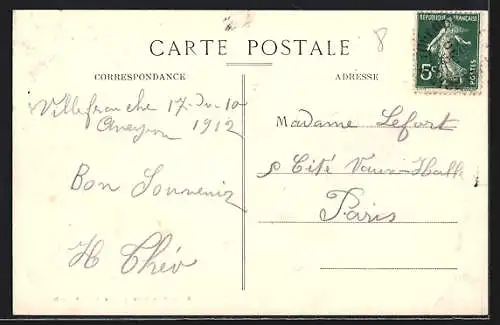 CARTE POSTALE
8
REPUBLIQUE FRANÇAISE
5c
POSTES
CORRESPONDANCE
ADRESSE
Villefranche 17- -10
Aveyron 1912
Bon Souvenir
H Thév
Madame Lefort
Cité Vaux-Hall
Paris